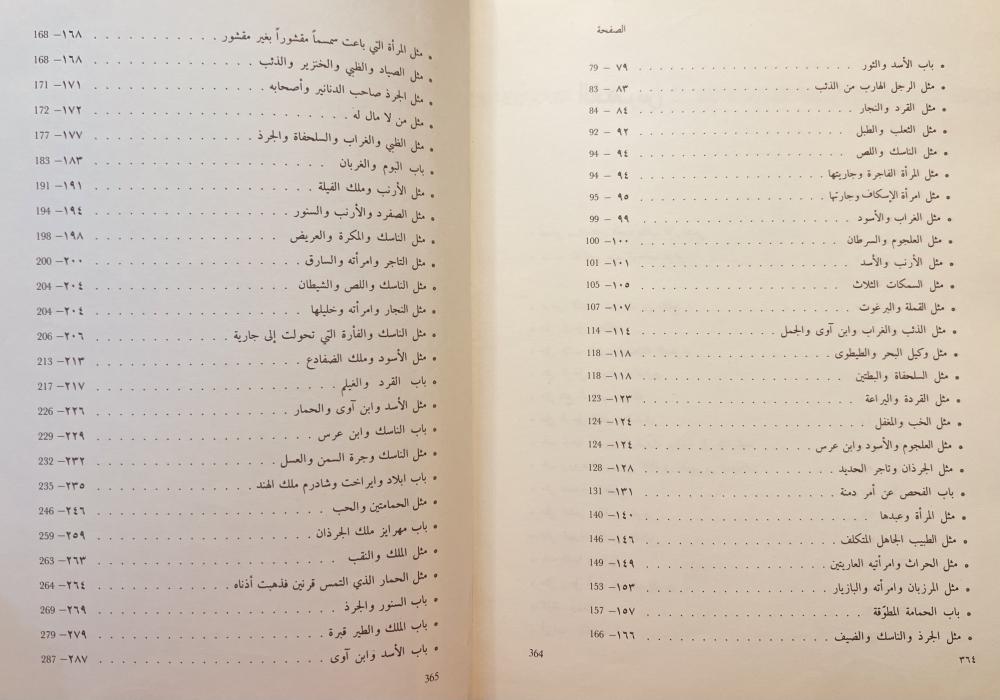 الصفحة
• باب الأسد والثور . . . . . . . . . . . . . . . . . . . . ٧٩ – 79
• مثل الرجل الهارب من الذئب . . . . . . . . . . . . . . . . ٨٣ – 83
• مثل القرد والنجار . . . . . . . . . . . . . . . . . . . . ٨٤ – 84
• مثل الثعلب والطبل . . . . . . . . . . . . . . . . . . . . ٩٢ – 92
• مثل الناسك واللص . . . . . . . . . . . . . . . . . . . . ٩٤ – 94
• مثل المرأة الفاجرة وجاريتها . . . . . . . . . . . . . . . . ٩٤ – 94
• مثل امرأة الإسكاف وجارتها . . . . . . . . . . . . . . . . ٩٥ – 95
• مثل الغراب والأسود . . . . . . . . . . . . . . . . . . . . ٩٩ – 99
• مثل العلجوم والسرطان . . . . . . . . . . . . . . . . . . ١٠٠– 100
• مثل الأرنب والأسد . . . . . . . . . . . . . . . . . . . . ١٠١– 101
• مثل السمكات الثلاث . . . . . . . . . . . . . . . . . . . ١٠٥– 105
• مثل القملة والبرغوت . . . . . . . . . . . . . . . . . . . ١٠٧– 107
• مثل الذئب والغراب وابن آوى والجمل . . . . . . . . . . . . ١١٤– 114
• مثل وكيل البحر والطيطوى . . . . . . . . . . . . . . . . . ١١٨– 118
• مثل السلحفاة والبطتين . . . . . . . . . . . . . . . . . . ١١٨– 118
• مثل القردة واليراعة . . . . . . . . . . . . . . . . . . . ١٢٣– 123
• مثل الخب والمغفل . . . . . . . . . . . . . . . . . . . . ١٢٤– 124
• مثل العلجوم والأسود وابن عرس . . . . . . . . . . . . . . ١٢٤– 124
• مثل الجرذان وتاجر الحديد . . . . . . . . . . . . . . . . . ١٢٨– 128
• باب الفحص عن أمر دمنة . . . . . . . . . . . . . . . . . ١٣١– 131
• مثل المرأة وعبدها . . . . . . . . . . . . . . . . . . . . ١٤٠– 140
• مثل الطبيب الجاهل المتكلف . . . . . . . . . . . . . . . . ١٤٦– 146
• مثل الحراث وامرأتيه العاريتين . . . . . . . . . . . . . . . ١٤٩– 149
• مثل المرزبان وامرأته والبازيار . . . . . . . . . . . . . . . ١٥٣– 153
• باب الحمامة المطوّقة . . . . . . . . . . . . . . . . . . . ١٥٧– 157
• مثل الجرذ والناسك والضيف . . . . . . . . . . . . . . . . ١٦٦– 166
٣٦٤ 364
• مثل المرأة التي باعت سمسماً مقشوراً بغير مقشور . . . . . . . . . ١٦٨– 168
• مثل الصياد والظبي والخنزير والذئب . . . . . . . . . . . . . ١٦٨– 168
• مثل الجرذ صاحب الدنانير وأصحابه . . . . . . . . . . . . . ١٧١– 171
• مثل من لا مال له . . . . . . . . . . . . . . . . . . . . ١٧٢– 172
• مثل الظبي والغراب والسلحفاة والجرذ . . . . . . . . . . . . ١٧٧– 177
• باب البوم والغربان . . . . . . . . . . . . . . . . . . . . ١٨٣– 183
• مثل الأرنب وملك الفيلة . . . . . . . . . . . . . . . . . . ١٩١– 191
• مثل الصفرد والأرنب والسنور . . . . . . . . . . . . . . . . ١٩٤– 194
• مثل الناسك والمكرة والعريض . . . . . . . . . . . . . . . . ١٩٨– 198
• مثل التاجر وامرأته والسارق . . . . . . . . . . . . . . . . ٢٠٠– 200
• مثل الناسك واللص والشيطان . . . . . . . . . . . . . . . . ٢٠٤– 204
• مثل النجار وامرأته وخليلها . . . . . . . . . . . . . . . . ٢٠٤– 204
• مثل الناسك والفأرة التي تحولت إلى جارية . . . . . . . . . . ٢٠٦– 206
• مثل الأسود وملك الضفادع . . . . . . . . . . . . . . . . . ٢١٣– 213
• باب القرد والغيلم . . . . . . . . . . . . . . . . . . . . ٢١٧– 217
• مثل الأسد وابن آوى والحمار . . . . . . . . . . . . . . . . ٢٢٦– 226
• باب الناسك وابن عرس . . . . . . . . . . . . . . . . . . ٢٢٩– 229
• مثل الناسك وجرة السمن والعسل . . . . . . . . . . . . . . ٢٣٢– 232
• باب ابلاد وايراخت وشادرم ملك الهند . . . . . . . . . . . . ٢٣٥– 235
• مثل الحمامتين والحب . . . . . . . . . . . . . . . . . . . ٢٤٦– 246
• باب مهرايز ملك الجرذان . . . . . . . . . . . . . . . . . . ٢٥٩– 259
• مثل الملك والنقب . . . . . . . . . . . . . . . . . . . . ٢٦٣– 263
• مثل الحمار الذي التمس قرنين فذهبت أذناه . . . . . . . . . . ٢٦٤– 264
• باب السنور والجرذ . . . . . . . . . . . . . . . . . . . . ٢٦٩– 269
• باب الملك والطير قبرة . . . . . . . . . . . . . . . . . . . ٢٧٩– 279
• باب الأسد وابن آوى . . . . . . . . . . . . . . . . . . . ٢٨٧– 287
365